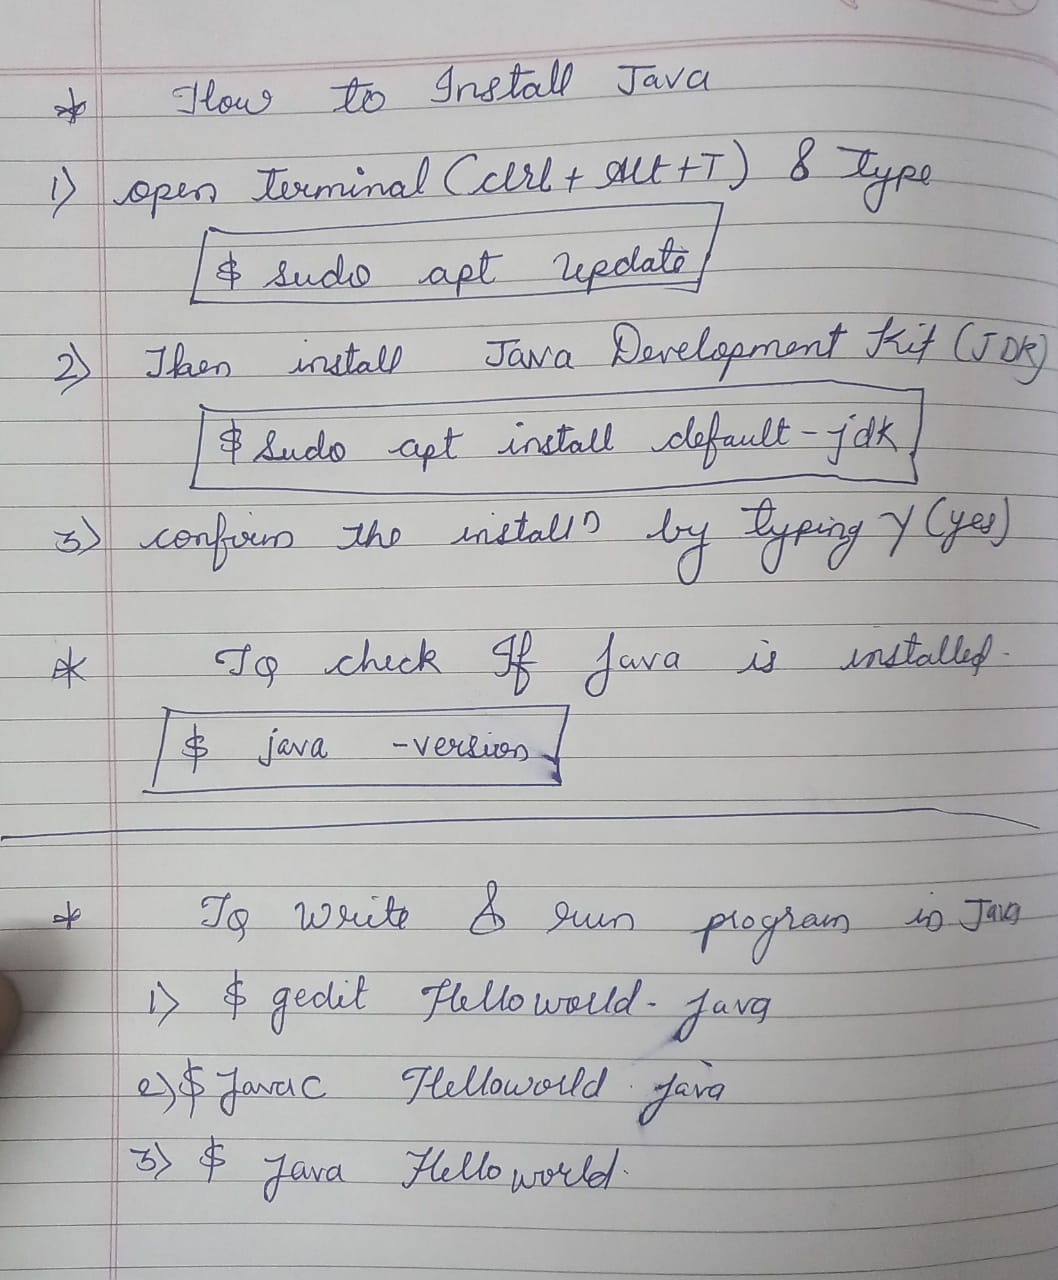 * How to Install Java
1) open Terminal (ctrl + Alt + T) & Type
$ sudo apt update
2) Then install Java Development Kit (JDK)
$ sudo apt install default-jdk
3) confirm the install^n by typing Y (yes)
* To check If Java is installed.
$ java -version
* To write & run program in Java
1) $ gedit Helloworld. Java
2) $ Javac Helloworld. Java
3) $ Java Helloworld.